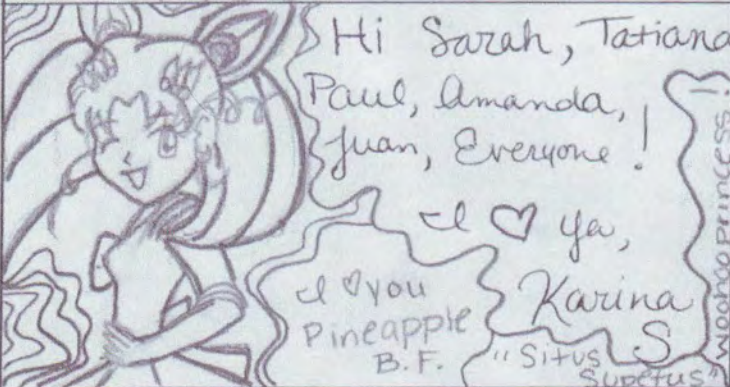 Hi Sarah, Tatiana
Paul, Amanda,
Juan, Everyone!
I ♡ ya,
Karina
S
I ♡ you
Pineapple
B.F.
"Situs
Supetus"
Woohoo princess!